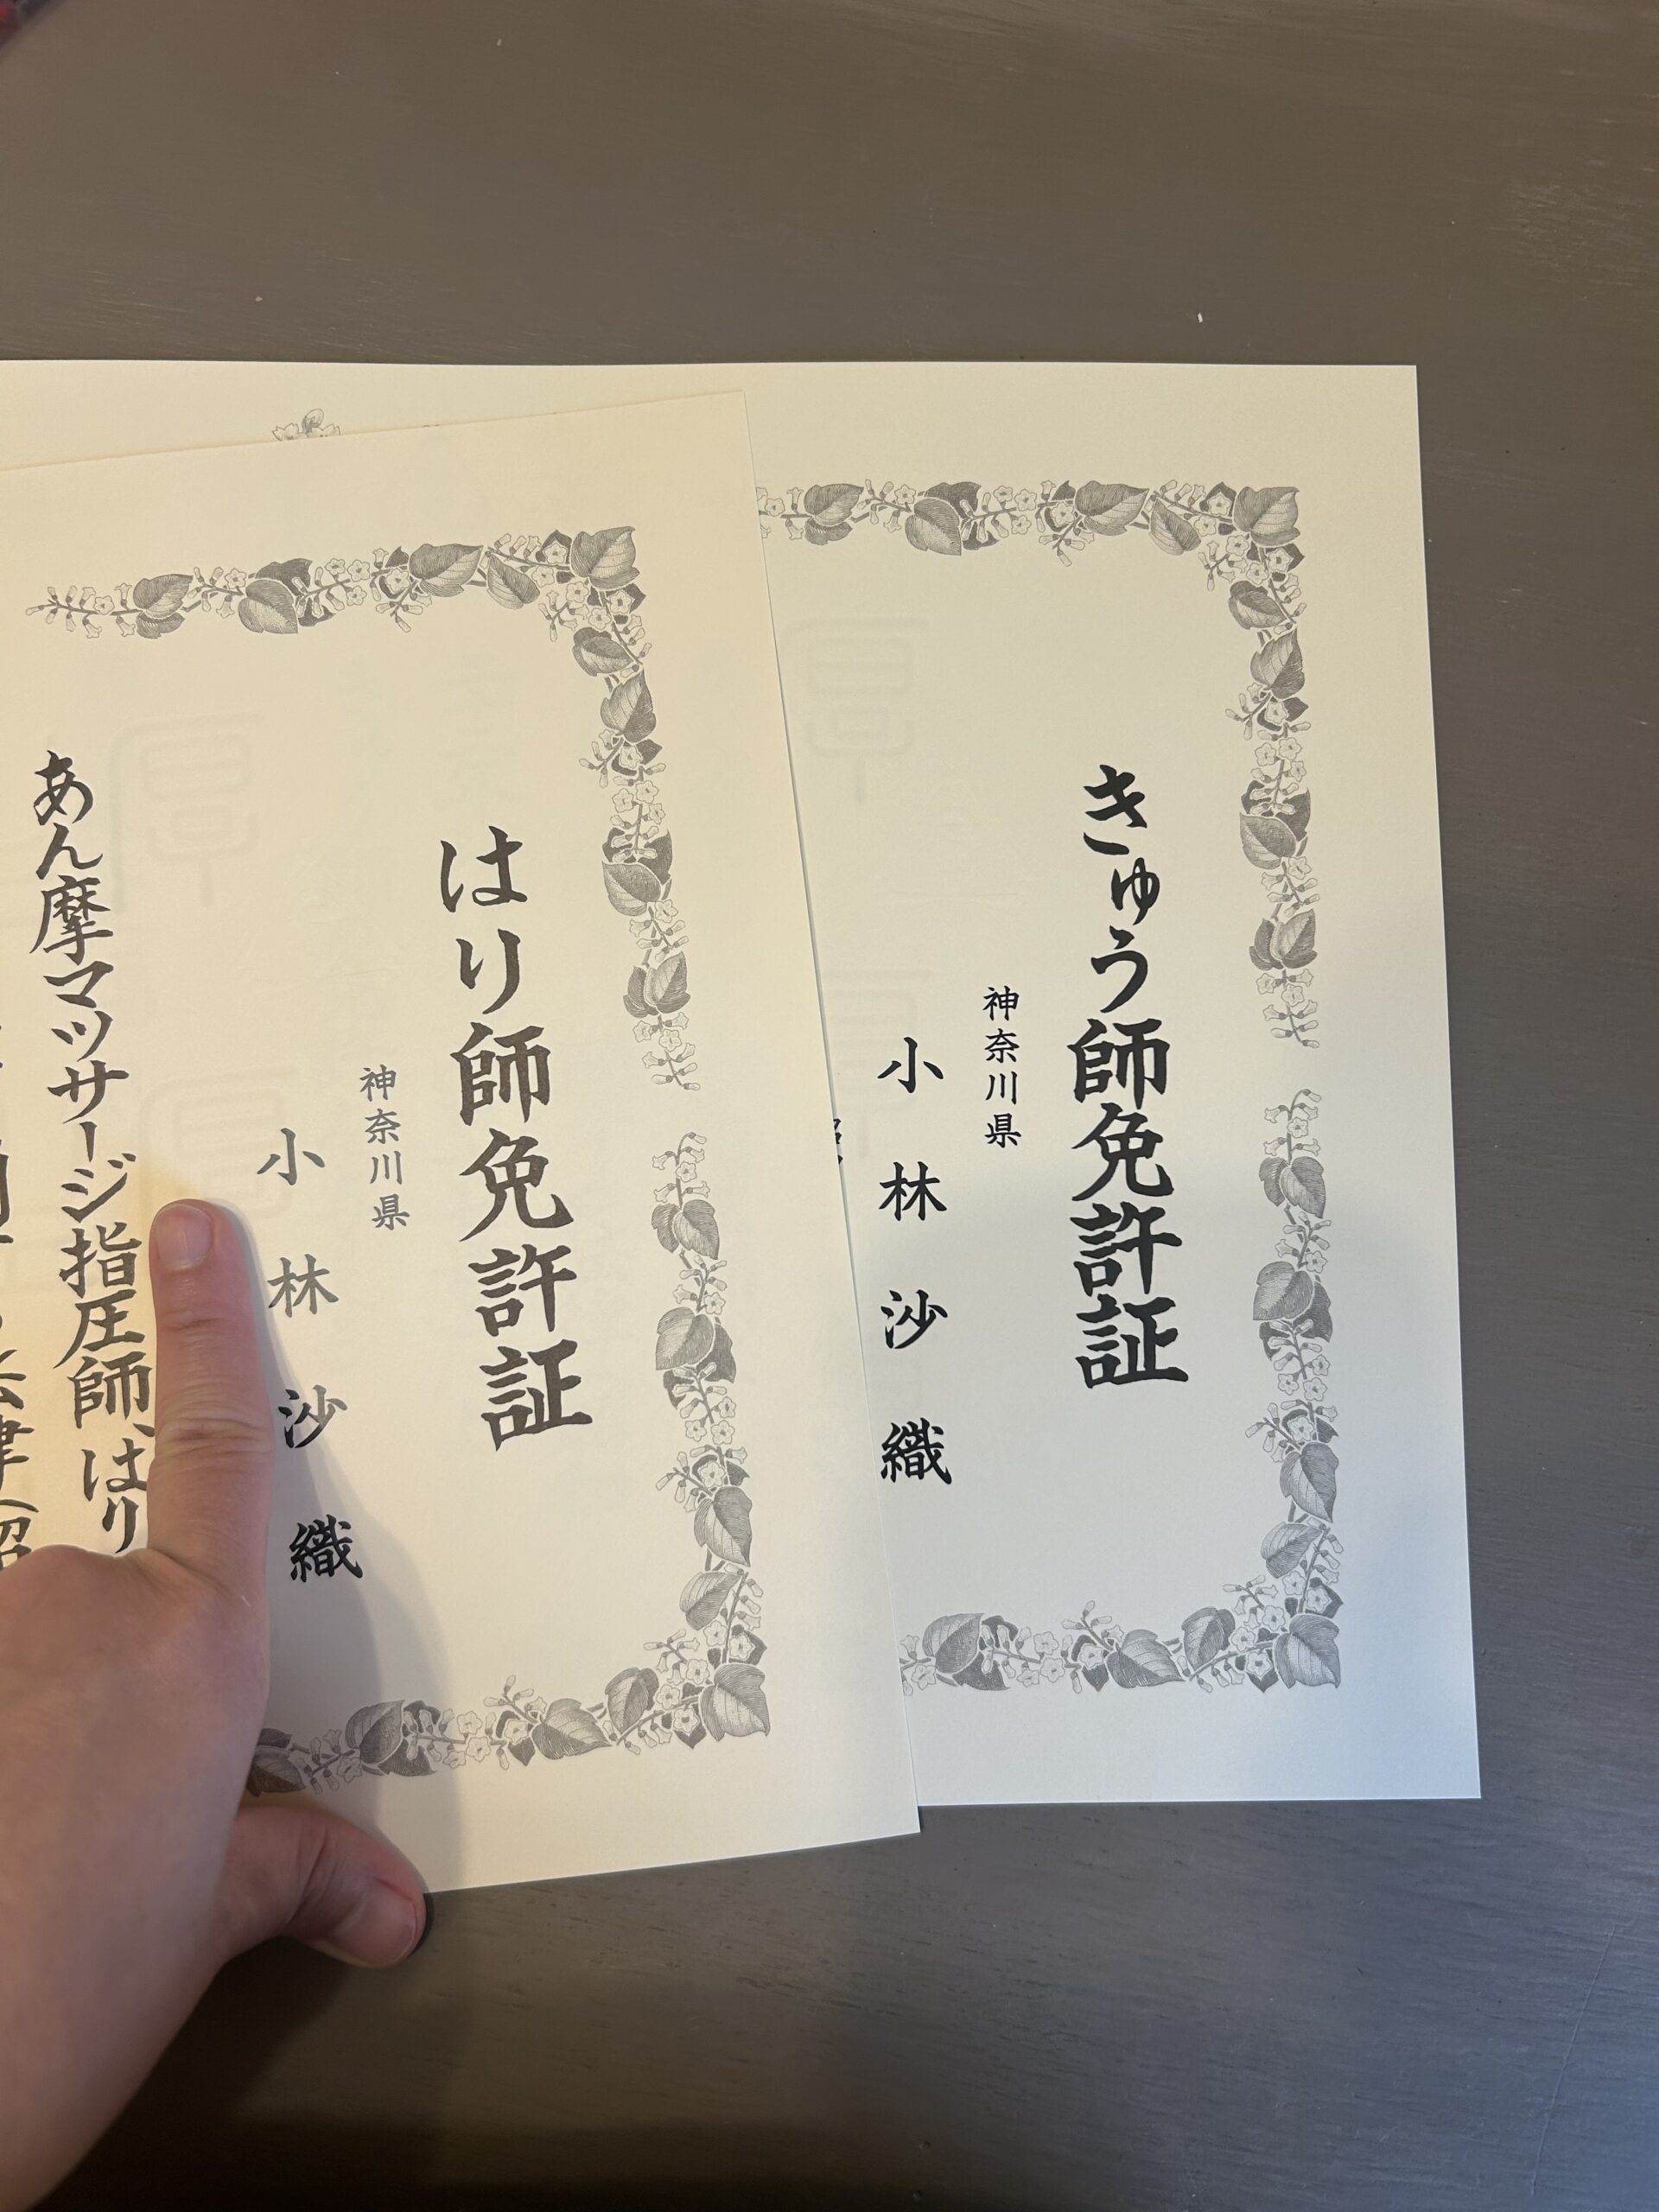 きゅう師免許証
神奈川県
小林沙織
はり師免許証
神奈川県
小林沙織
あん摩マッサージ指圧師、はり